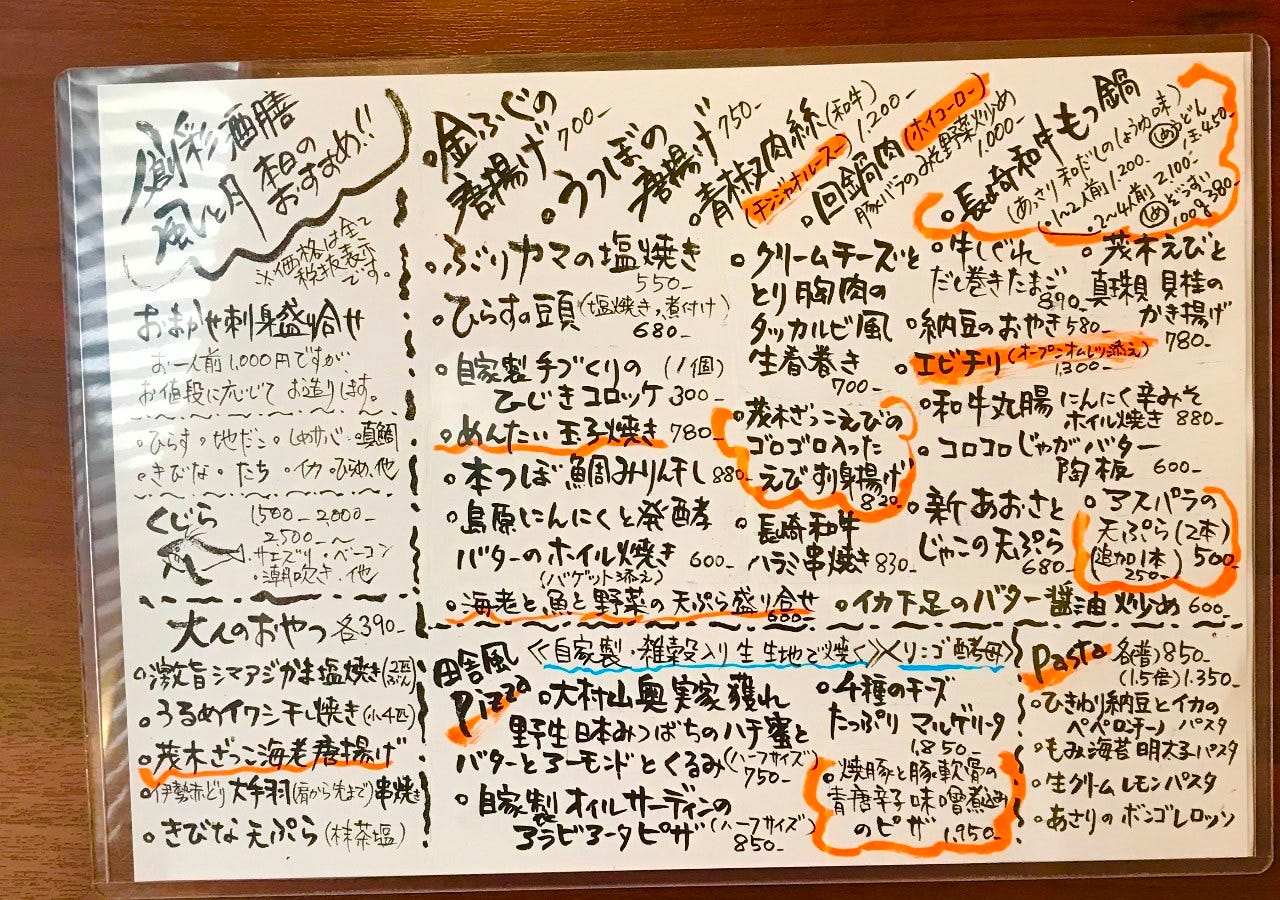 創彩酒膳
風と月
本日の
おすすめ!!
※価格は全て
税抜表示
です。
おまかせ刺身盛り合せ
お一人前1,000円ですが、
お値段に応じて お造りします。
・ひらす・地だこ・しめサバ・真鯛
・きびな・たち・イカ・ひらめ、他
くじら 1500-2000-
2500-〜
・サエズリ・ベーコン
・潮吹き、他
大人のおやつ 各390-
・激旨シマアジかま塩焼き(2匹ぶん)
・うるめイワシ干し焼き(小4匹)
・茂木ざっこ海老唐揚げ
・伊勢赤どり大手羽(肩から先まで)串焼き
・きびな天ぷら(抹茶塩)
・金ふぐの
唐揚げ 700-
・うつぼの
唐揚げ 750-
・青椒肉絲(和牛)
(チンジャオルースー) 1.200-
・回鍋肉(ホイコーロー)
豚バラのみそ野菜炒め
1.000-
・長崎和牛もつ鍋
(あっさり和だしのしょうゆ味)
・1〜2人前1.200- 〆うどん
1玉450-
・2〜4人前2.100- 〆ぞうすい
100g380-
・ぶりヤマの塩焼き
550-
・ひらすの頭(塩焼き,煮付け)
680-
・自家製手づくりの(1個)
ひじきコロッケ300-
・めんたい玉子焼き 780-
・本つぼ鯛みりん干し 880-
・島原にんにくと発酵
バターのホイル焼き 600-
(バゲット添え)
・海老と魚と野菜の天ぷら盛り合せ
600-
・クリームチーズと
とり胸肉の
タッカルビ風
生春巻き
700-
・茂木ざっこえびの
ゴロゴロ入った
えびすり身揚げ
820-
・長崎和牛
ハラミ串焼き830-
・イカ下足のバター醤油炒め600-
・牛しぐれ
だし巻きたまご
890-
・納豆のおやき580-
・エビチリ(オープンオムレツ添え)
1.300-
・和牛丸腸にんにく辛みそ
ホイル焼き 880-
・コロコロじゃがバター
陶板 600-
・新あおさと
じゃこの天ぷら
680-
・茂木えびと
真珠貝貝柱の
かき揚げ
780-
・アスパラの
天ぷら(2本)
(追加1本 500-
250-)
田舎風
Pizza
≪自家製・雑穀入り生生地で焼く≫≪リンゴ酵母≫
・大村山奥実家獲れ
野生日本みつばちのハチ蜜と
バターとアーモンドとくるみ(ハーフサイズ)
750-
・自家製オイルサーディンの
アラビアータピザ(ハーフサイズ)
850-
・4種のチーズ
たっぷりマルゲリータ
1.850-
・焼豚と豚軟骨の
青唐辛子味噌煮込み
のピザ 1,950-
Pasta 各(普)850-
(1.5倍)1.350-
・ひきわり納豆とイカの
ペペロンチーノパスタ
・もみ海苔明太子パスタ
・生クリームレモンパスタ
・あさりのボンゴレロッソ